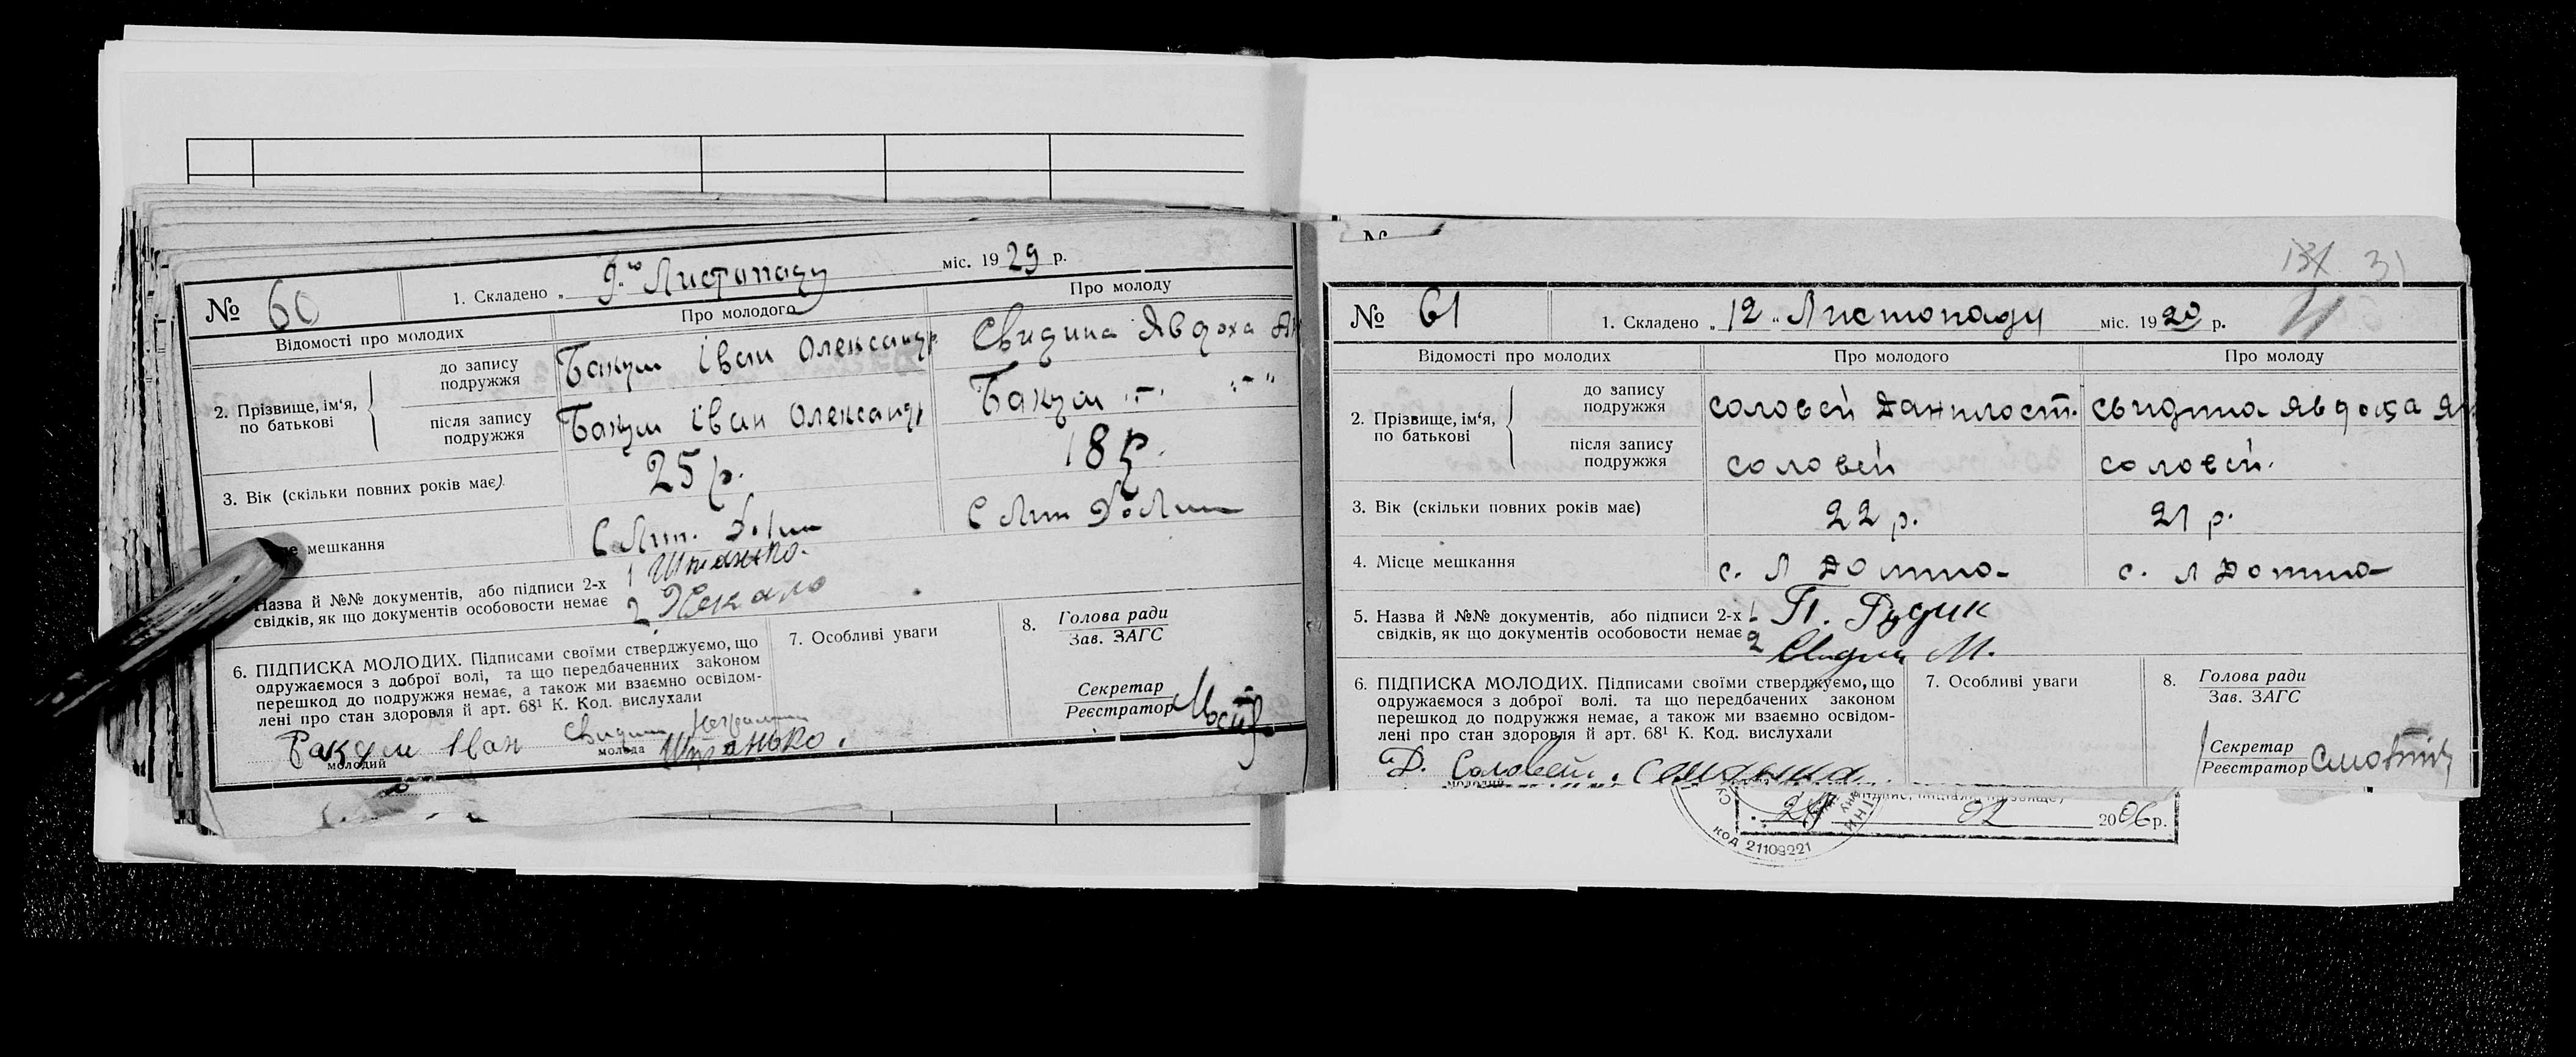 № 60
1. Складено „ 9го Листопаду міс. 1929 р.
Відомості про молодих
Про молодого
Про молоду
2. Прізвище, ім‘я, по батькові
до запису подружжя
Бакум Іван Олександр
Свидина Явдоха
після запису подружжя
Бакум Іван Олександр
Бакум -"- "-"
3. Вік (скільки повних років має)
25 р.
18 р.
мешкання
С Лип. Долин
С Лип Долин
Назва й №№ документів, або підписи 2-х
свідків, як що документів особовости немає
1 Штанько.
2
6. ПІДПИСКА МОЛОДИХ. Підписами своїми стверджуємо, що
одружаємося з доброї волі, та що передбаченних законом
перешкод до подружжя немає, а також ми взаємно освідом-
лені про стан здоровля й арт. 68¹ К. Код. вислухали
Бакум Іван
Свидин Неграмотн
молодий
молода
Штанько.
7. Особливі уваги
8. Голова ради
Зав. ЗАГС
Секретар
Реєстратор
№
31
№ 61
1. Складено „ 12 " Листопаду міс. 1929 р.
Відомості про молодих
Про молодого
Про молоду
2. Прізвище, ім‘я, по батькові
до запису подружжя
Соловей Данило Ст.
Свидина Явдоха
після запису подружжя
Соловей
Соловей.
3. Вік (скільки повних років має)
22 р.
21 р.
4. Місце мешкання
с. Л Долина
с. Л Долина
5. Назва й №№ документів, або підписи 2-х
свідків, як що документів особовости немає
1 П. Рудик
2 Свидин М.
6. ПІДПИСКА МОЛОДИХ. Підписами своїми стверджуємо, що
одружаємося з доброї волі. та що передбачених законом
перешкод до подружжя немає, а також ми взаємно освідом-
лені про стан здоровля й арт. 68¹ К. Код. вислухали
Д. Соловей.
молодий
7. Особливі уваги
8. Голова ради
Зав. ЗАГС
Секретар
Реєстратор
02 2006 р.
КОД 21109221